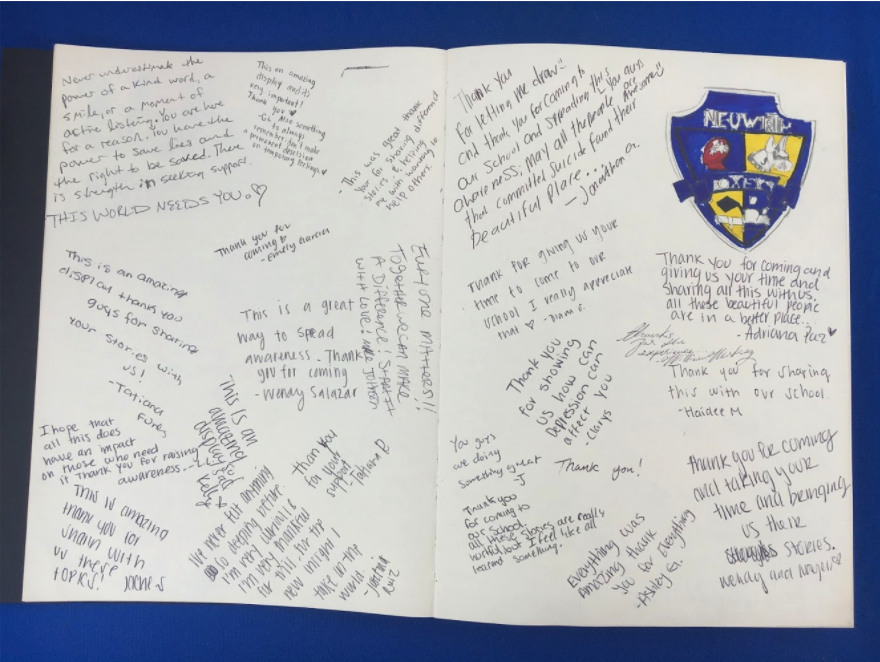 Never underestimate the
power of a kind word, a
smile, or a moment of
active listing. You are here
for a reason. You have the
power to save lives and
the right to be saved. There
is strength in seeking support.
THIS WORLD NEEDS YOU.
This an amazing
display and it's
very important!
Thank you
something
to always
remember don't make
a permanent decision
on temporary feelings.
This was great thank
you for sharing different
stories & helping
me with wanting to
help others.
Thank you for
coming to
- Emely Garcia
This is an amazing
display thank you
guys for sharing
your stories with
us!
- Tatiana
This is a great
way to spead
awareness. Thank
you for coming
- Wendy Salazar
EVERYONE MATTERS!!
TOGETHER WE CAN MAKE
A DIFFERENCE! START IT
WITH LOVE!
I hope that
all this does
have an impact
on those who need
it Thank you for raising
awareness.
This is an
amazing
display
so sad
Kelly
thank you
for your
support
- Tatiana R
This is amazing
thank you for
with
us these
topics!
I've never felt anything
so deeping before.
I'm very
I'm very thankful
for this for the
new insight I
take in the
world.
Ruiz
Thank you
for letting me draw
and thank you for coming to
our School and spreading this
awareness. You guys
are Awesome
may all the people
that committed suicide found their
beautiful place...
- Jonathon G.
NEUWIRTH
FOXES
Thank for giving us your
time to come to our
school I really appreciate
that - Diana G.
Thank you for coming and
giving us your time and
sharing all this with us.
all these beautiful people
are in a better place.
- Adriana Paz
Thanks
for the
experience
Thank you
for showing
us how can
Depression can
affect you
- Clarys
Thank you for sharing
this with our school.
- Haidee M
You guys
are doing
something great
- J
Thank you!
Thank you
for coming to
our school.
all these stories are really
but I feel like all
learned something.
Everything was
Amazing thank
you for everything
- Ashley G.
thank you for coming
and taking your
time and bringing
us their
stories.